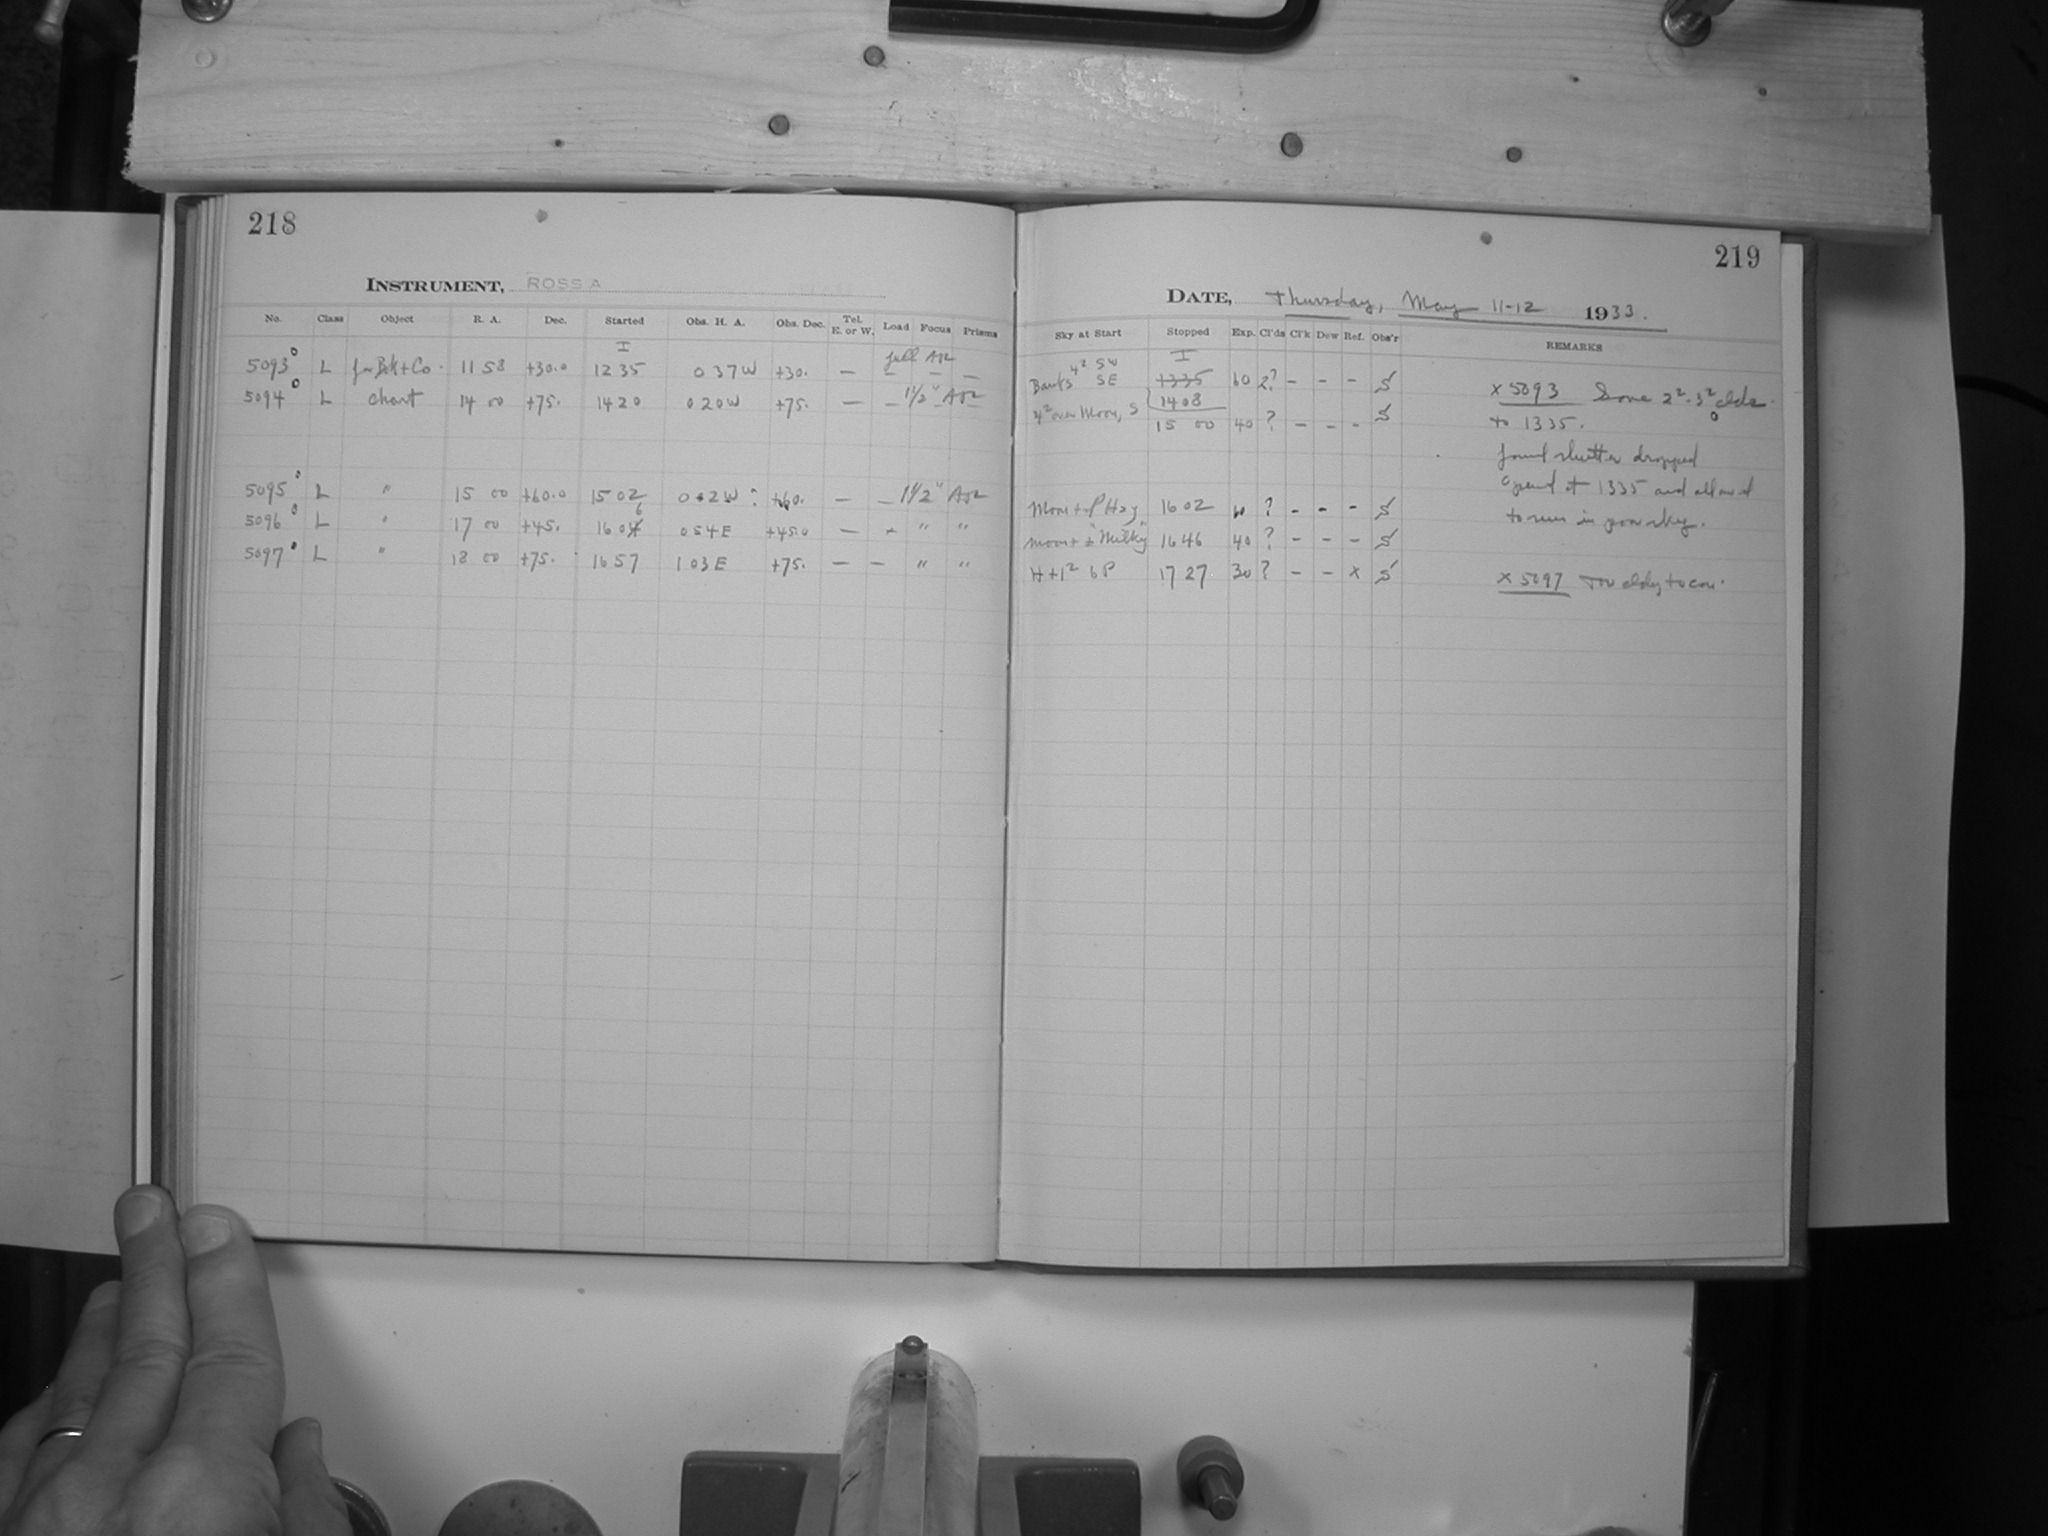 218
INSTRUMENT, ROSS A
No. Class Object R. A. Dec. Started Obs. H. A. Obs. Dec. Tel. E. or W. Load Focus Prisms
I
5093° L 11 58 +30.0 12 35 0 37 W +30. — full — — —
5094° L chart 14 00 +75. 14 20 0 20 W +75. — — 1 1/2"
5095° L " 15 00 +60.0 15 02 0 02 W +60. — — 1 1/2"
5096° L " 17 00 +45. 16 06 0 54 E +45.0 — — " "
5097° L " 18 00 +75. 16 57 1 03 E +75. — — " "
219
DATE, Thursday, May 11-12 1933.
Sky at Start Stopped Exp. Cl'ds Cl'k Dew Ref. Obs'r REMARKS
4² SW I
Banks SE 1335 60 2? – – – S
1408
4² over Moon, S 15 00 40 ? – – – S
Moon + 16 02 60 ? – – – S
Moon + "Milky" 16 46 40 ? – – – S
H+1² 6P 17 27 30 ? – – x S
x 5093 Some 2²-3² clds.
to 1335.
found shutter dropped
opened at 1335 and allowed
to run in poor sky.
x 5097 Too cldy to con.